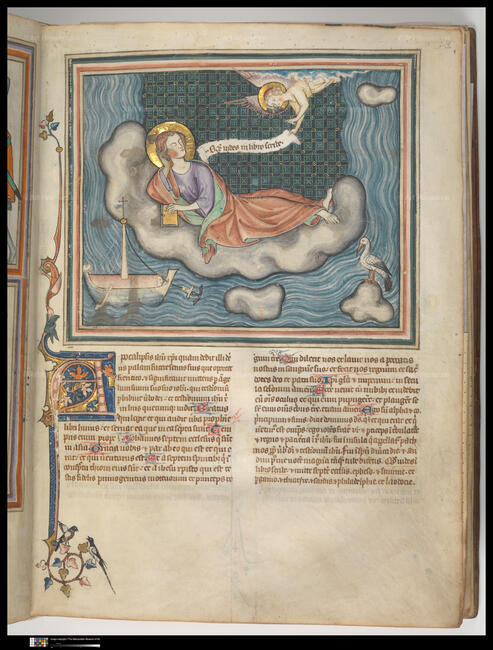 Q̄ vides in libro scribe
Apocalipsis ihu xpi quam dedit illi de
us palam facere seruis suis que oportet
fieri cito et significauit mittens p ange
lum suum seruo suo iohi qui testimoniu
phibuit ubo dei et testimoniu ihu
in hiis quecumq uidit Beatus
qui legit et qui audit uba pphetie
libri huius et seruat ea que i ea scpta st Tem
pus enim prope Iohannes septem ecclesiis que st
in asia Gratia uobis et pax ab eo qui est et qui e
rat et qui uenturus est Et a septem q i
conspectu throni eius sut et a ihesu xpisto qui est tes
tis fidelis primogenitus mortuorum et princeps re
gum tre Qui dilexit nos et lauit nos a peccatis
nostris in sanguine suo et fecit nos regnum et sa
cerdotes deo et patri suo Ipi gla et imperium in secu
la seculorum amen Ecce uenit cu nubibus et uidebit
eu oms oculus et qui eum pupugert et plangent se
sr eum oms tribus tre etiam amen Ego su alpha et o
principium et finis dicit dominus deus qui est et qui erat et q
uenturus est omps Ego iohes frater et particeps i tribulatione
et regno et patientia i xpo ihu fui in insula q appellatur path
mos ppt uerbu dei et testimoniu ihu Fui i spu i dnica die et au
diui post me uoce magna taqm tube dicentis Qd uides i
libro scribe et mitte septe ecclesiis epheso et smirne et
pgamo et thiatire et sardis et philadelphie et laodicie